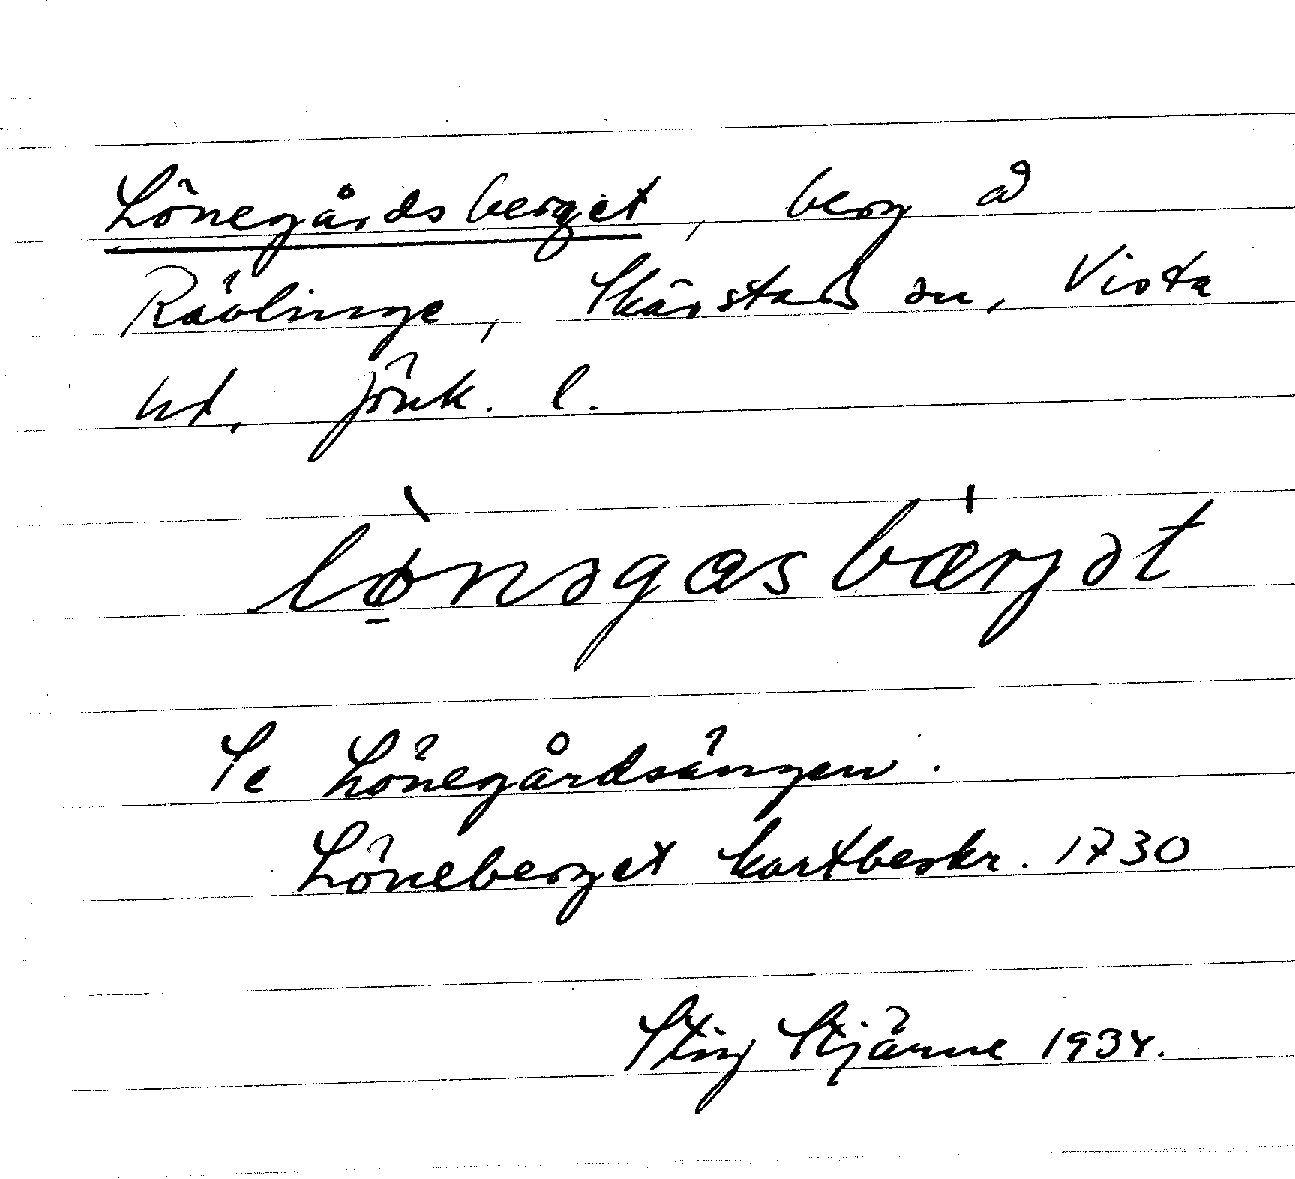 Lönegårdsberget, berg å
Rävlinge, Skärstads sn, Vista
hd, Jönk. l.
lø̠̀nəgasbær̍jət
Se Lönegårdsängen.
Löneberget kartbeskr. 1730
Stig Stjärne 1934.